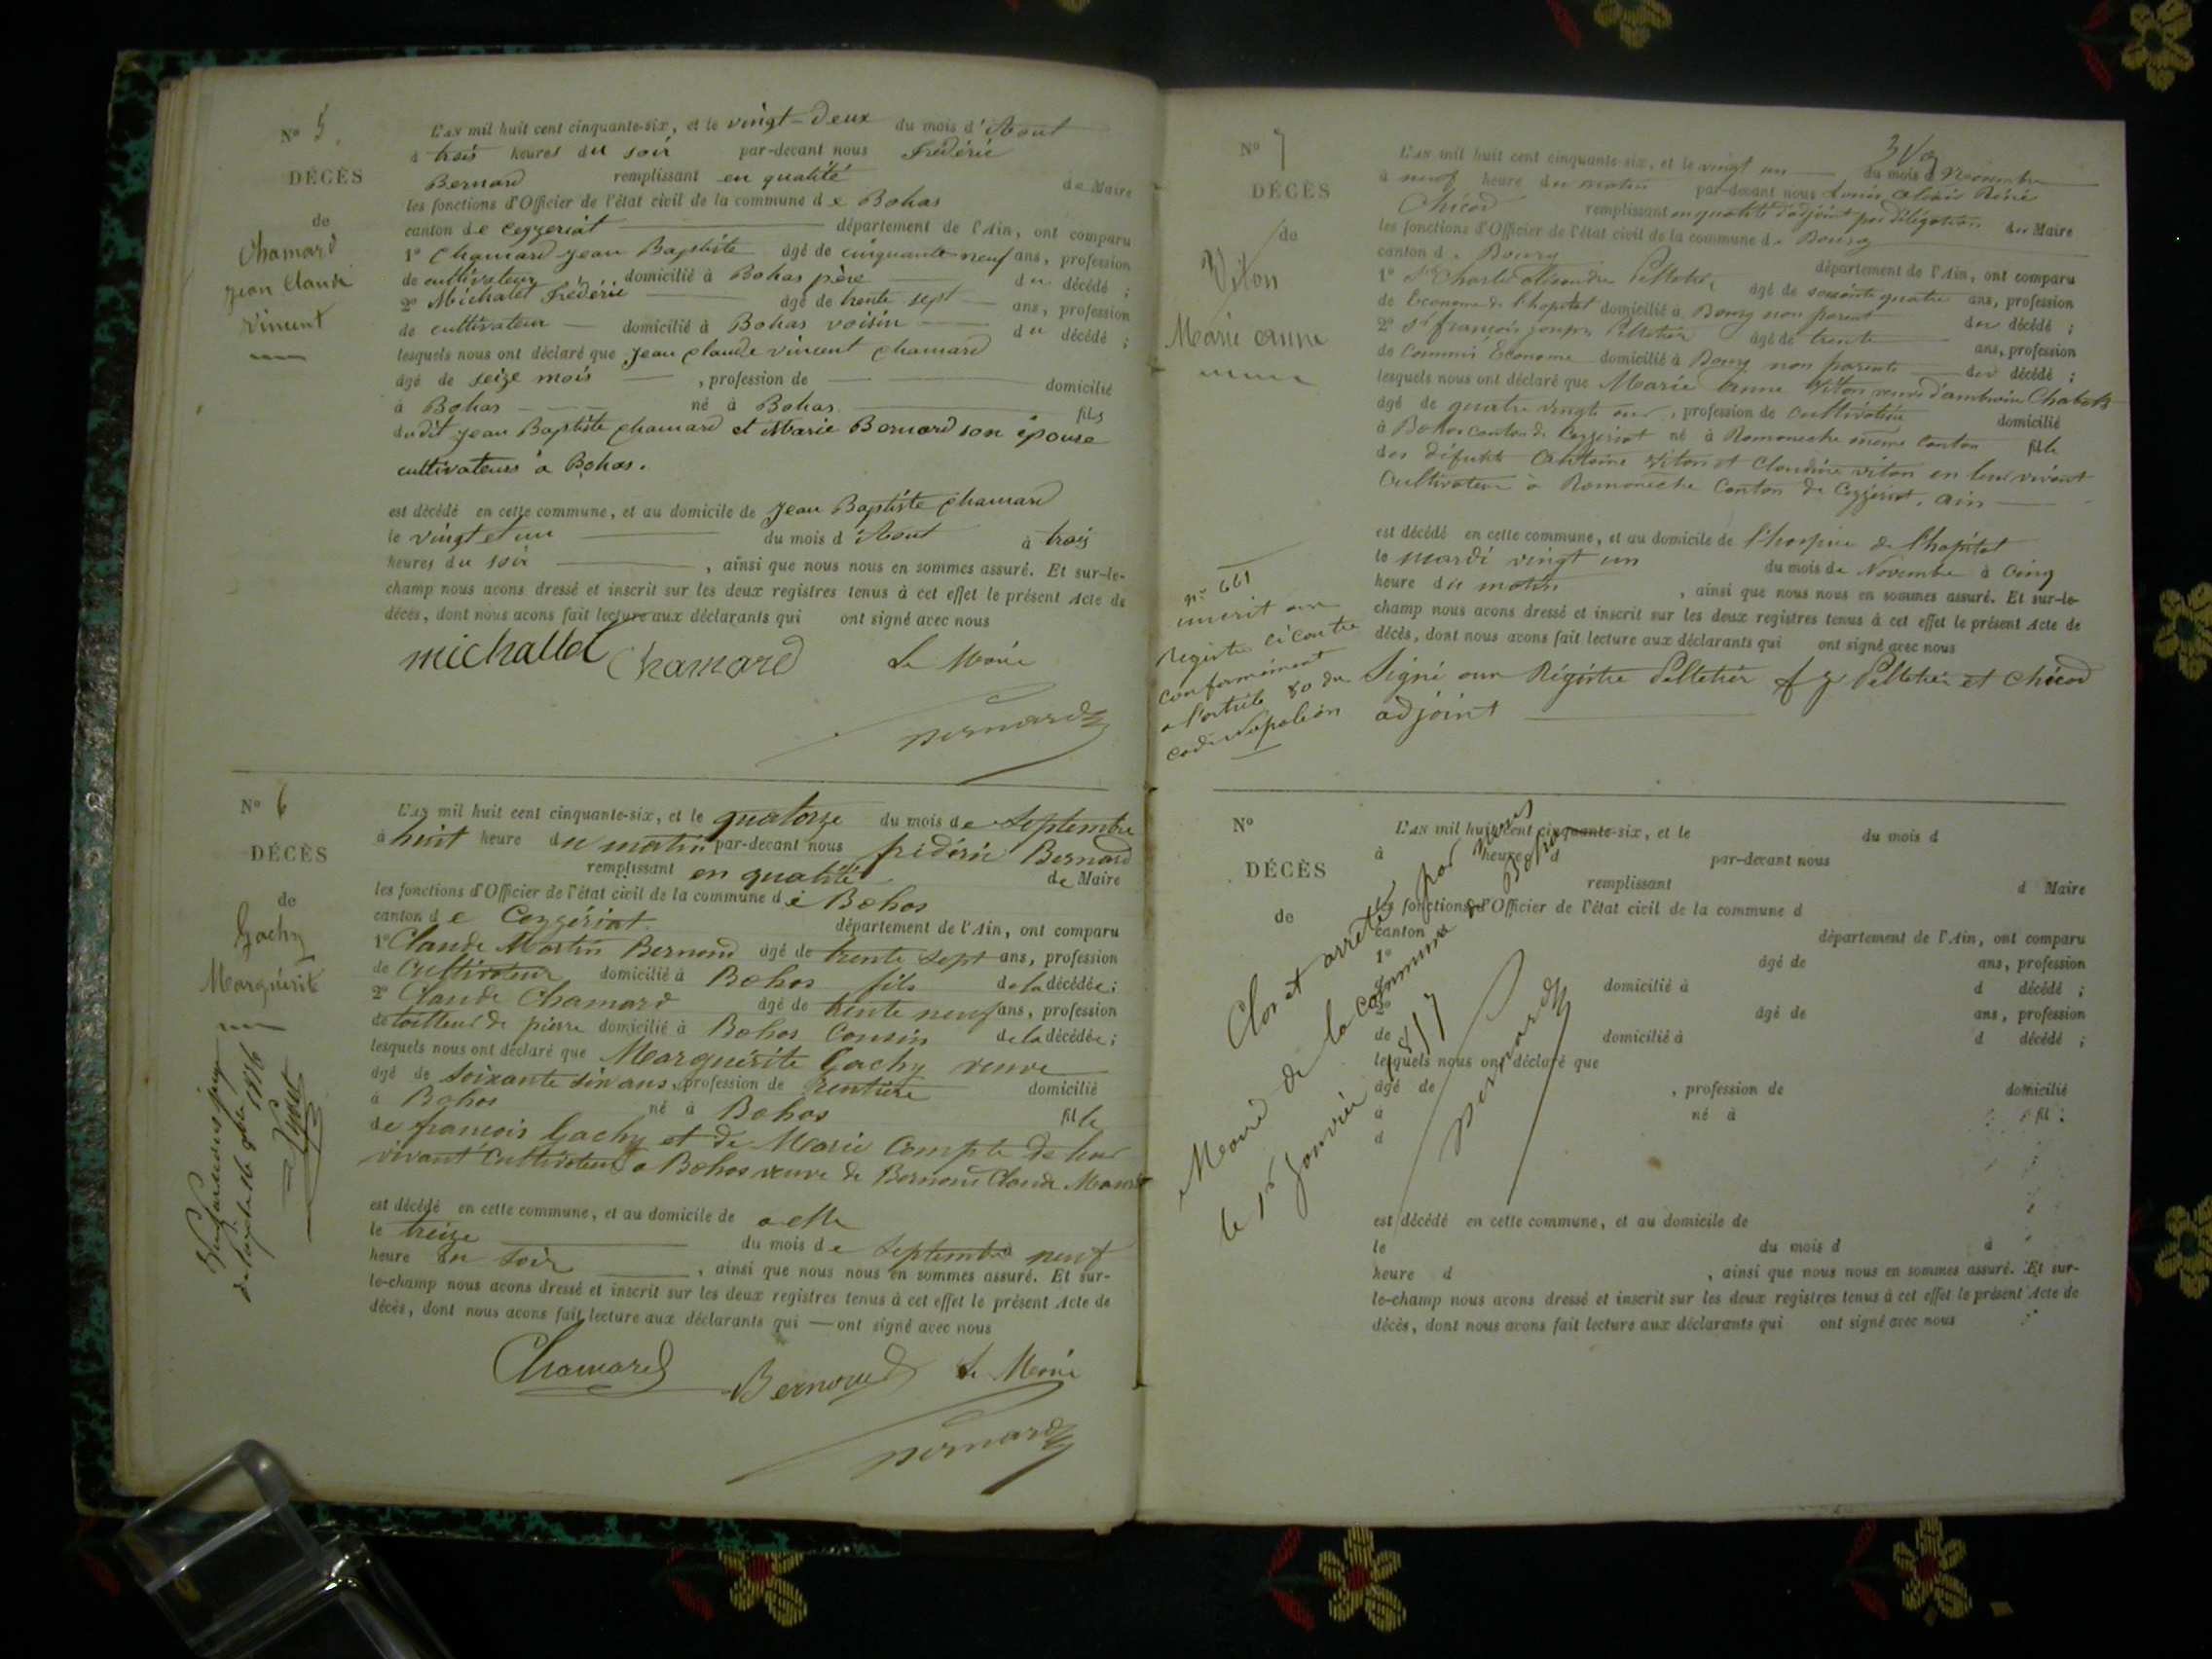 N° 5.
DÉCÈS
de
Chamard
Jean Claude
Vincent
L'AN mil huit cent cinquante-six, et le vingt-deux du mois d'Aout
à trois heures du soir par-devant nous Frédéric
Bernard remplissant en qualité de Maire
les fonctions d'Officier de l'état civil de la commune de Bohas
canton de Ceyzeriat département de l'Ain, ont comparu
1° Chamard Jean Baptiste âgé de cinquante neuf ans, profession
de cultivateur domicilié à Bohas père du décédé ;
2° Michalet Frédéric âgé de trente sept ans, profession
de cultivateur domicilié à Bohas voisin du décédé ;
lesquels nous ont déclaré que Jean Claude Vincent Chamard
âgé de seize mois , profession de domicilié
à Bohas né à Bohas fils
dudit Jean Baptiste Chamard et Marie Bernard son épouse
cultivateurs à Bohas.
est décédé en cette commune, et au domicile de Jean Baptiste Chamard
le vingt et un du mois d'Aout à trois
heures du soir , ainsi que nous nous en sommes assuré. Et sur-le-
champ nous avons dressé et inscrit sur les deux registres tenus à cet effet le présent Acte de
décès, dont nous avons fait lecture aux déclarants qui ont signé avec nous
michallet Chamard Le Maire
Bernard
N° 6
DÉCÈS
de
Gachy
Marguérite
L'AN mil huit cent cinquante-six, et le quatorze du mois de Septembre
à huit heure du matin par-devant nous frédéric Bernard
remplissant en qualité de Maire
les fonctions d'Officier de l'état civil de la commune de Bohas
canton de Ceyzériat département de l'Ain, ont comparu
1° Claude Martin Bernard âgé de trente sept ans, profession
de Cultivateur domicilié à Bohas fils de la décédée ;
2° Claude Chamard âgé de trente neuf ans, profession
de tailleur de pierre domicilié à Bohas Cousin de la décédée ;
lesquels nous ont déclaré que Marguérite Gachy veuve
âgé de soixante six ans, profession de rentière domicilié
à Bohas né à Bohas fille
de francois Gachy et de Marie Compte de leur
vivant Cultivateurs a Bohas veuve de Bernard Claude
est décédé en cette commune, et au domicile de a elle
le treize du mois de Septembre à neuf
heure du soir , ainsi que nous nous en sommes assuré. Et sur-
le-champ nous avons dressé et inscrit sur les deux registres tenus à cet effet le présent Acte de
décès, dont nous avons fait lecture aux déclarants qui — ont signé avec nous
Chamard Bernard Le Maire
Bernard
N° 7
DÉCÈS
de
Viton
Marie anne
L'AN mil huit cent cinquante-six, et le vingt un du mois de Novembre
à neuf heure du matin par-devant nous Louis René
Chicod remplissant en qualité d'adjoint par délégation du Maire
les fonctions d'Officier de l'état civil de la commune de Bourg
canton de Bourg département de l'Ain, ont comparu
1° Sr Charles alexandre Pelletier âgé de soixante quatre ans, profession
de Econome de l'hopital domicilié à Bourg non parent du décédé ;
2° Sr francois joseph Pelletier âgé de trente ans, profession
de Commis Econome domicilié à Bourg non parent du décédé ;
lesquels nous ont déclaré que Marie Anne Viton veuve d'ambroise
âgé de quatre vingts , profession de Cultivatrice domicilié
à Bohas canton de Ceyzeriat né à Romaneche même Canton fille
des défunts Antoine Viton et Claudine viton en leur vivant
Cultivateurs à Romaneche Canton de Ceyzeriat. ain
est décédé en cette commune, et au domicile de l'hospice de l'hopital
le mardi vingt un du mois de Novembre à Cinq
heure du matin , ainsi que nous nous en sommes assuré. Et sur-le-
champ nous avons dressé et inscrit sur les deux registres tenus à cet effet le présent Acte de
décès, dont nous avons fait lecture aux déclarants qui ont signé avec nous
Signé aux Régistre Pelletier f j Pelletier et Chicod
adjoint
n° 661
inscrit au
registre ci contre
conformément
a l'article 80 du
code Napoléon
N°
DÉCÈS
de
L'AN mil huit cent cinquante-six, et le du mois d
à heures d par-devant nous
remplissant d Maire
les fonctions d'Officier de l'état civil de la commune d
canton département de l'Ain, ont comparu
1° âgé de ans, profession
domicilié à d décédé ;
2° âgé de ans, profession
de domicilié à d décédé ;
lesquels nous ont déclaré que
âgé de , profession de domicilié
à né à fil
d
est décédé en cette commune, et au domicile de
le du mois d à
heure d , ainsi que nous nous en sommes assuré. Et sur-
le-champ nous avons dressé et inscrit sur les deux registres tenus à cet effet le présent Acte de
décès, dont nous avons fait lecture aux déclarants qui ont signé avec nous
Clos et arrêté par nous
Maire de la Commune de Bohas
le 1er Janvier 1857
Bernard